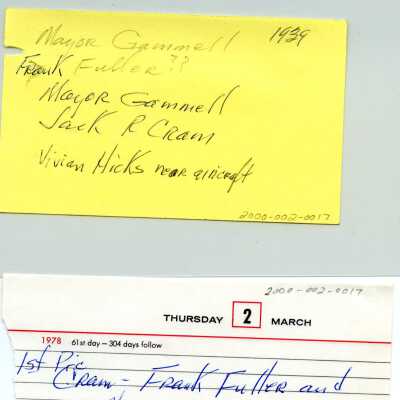 Mayor Gammell 1939
Frank Fuller??
Mayor Gammell
Jack R Cram
Vivian Hicks near aircraft
2000-002-0017
2000-002-0017
THURSDAY 2 MARCH
1978 61st day — 304 days follow
1st Pic
Cram - Frank Fuller and